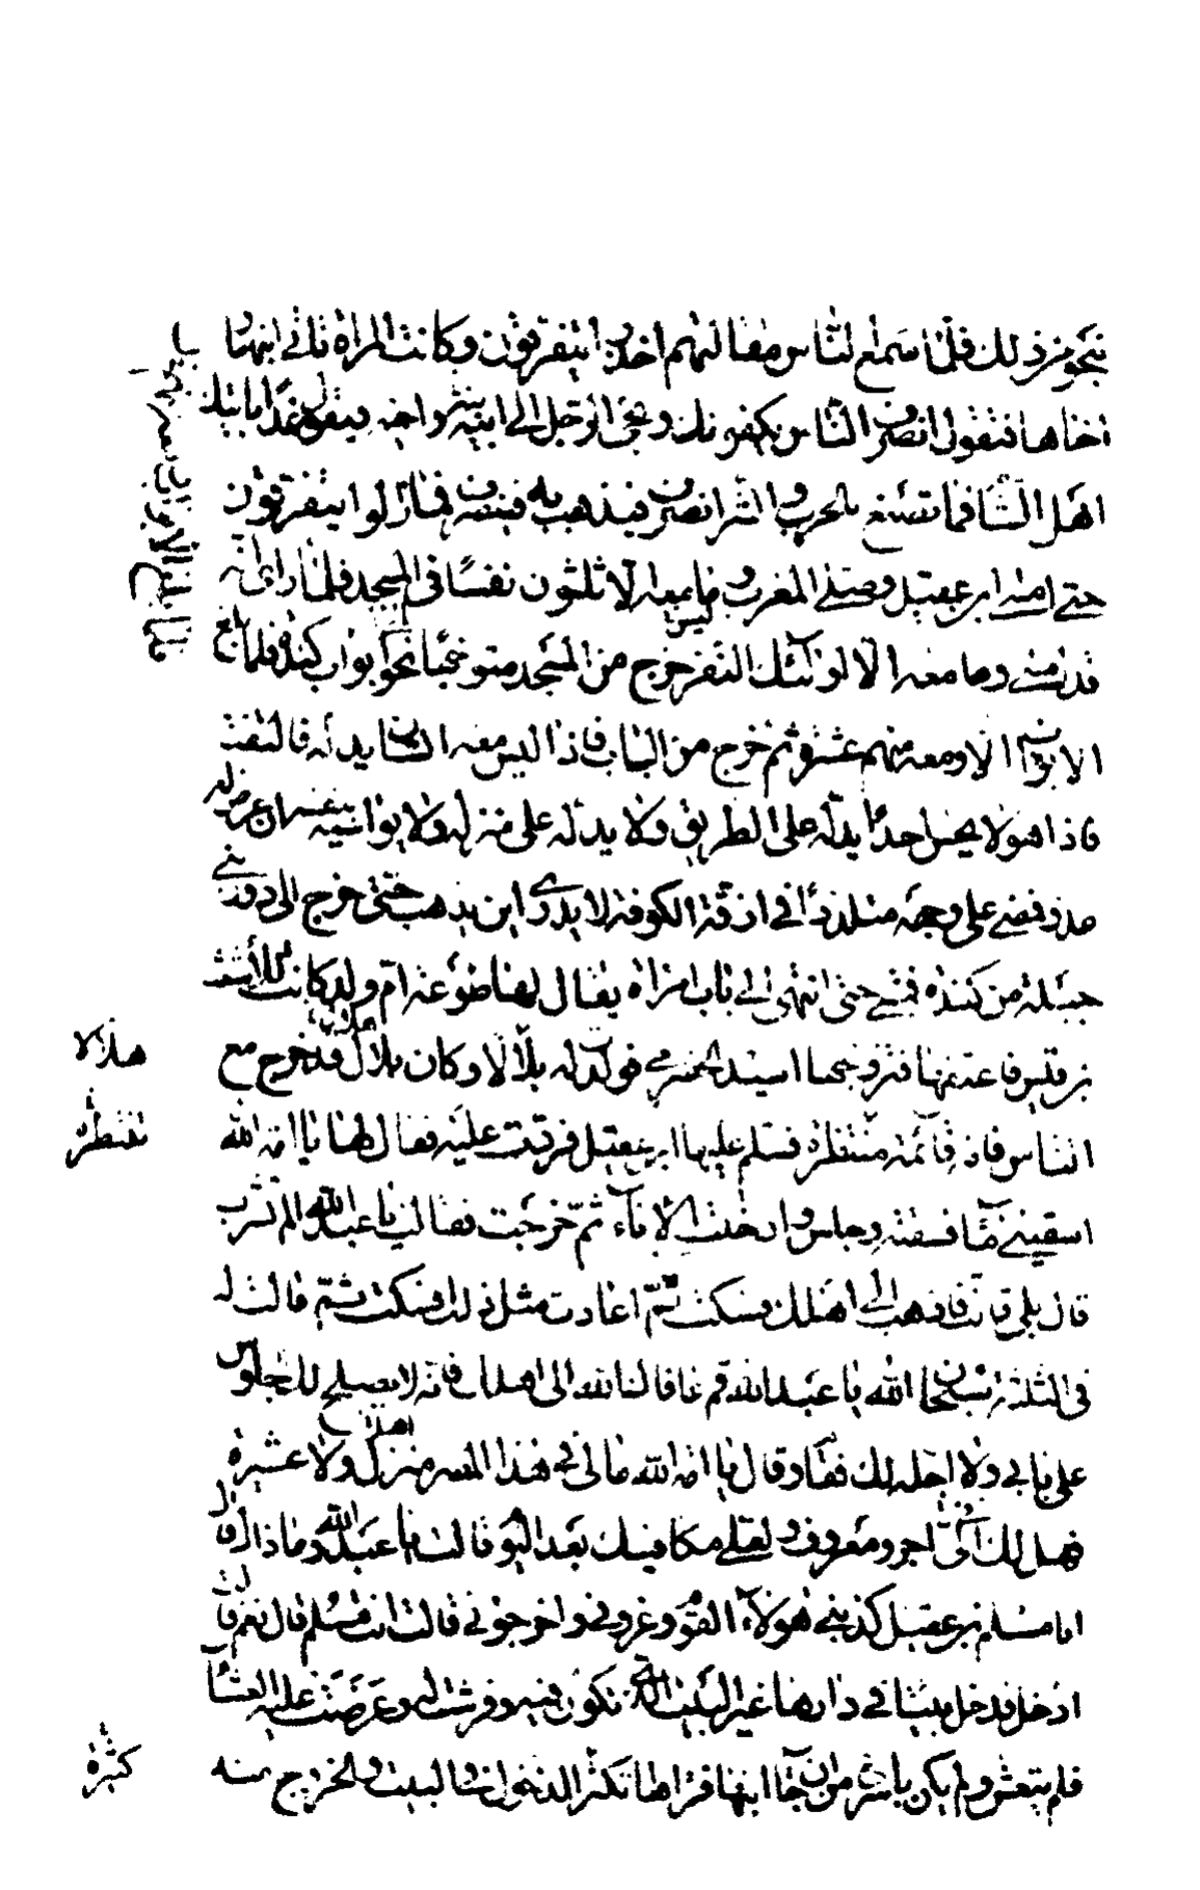 بنحو من ذلك فلما سمع الناس مقالتهم اخذوا يتفرقون وكانت المراة تاتي ابنها و
اخاها فتقول انصرف الناس يكفونك ويجئ الرجل الى ابنه واخيه فيقول غدا ياتيك
اهل الشام فما تصنع بالحرب والشر انصرف فيذهب به فينصرف فما زالوا يتفرقون
حتى امسى ابن عقيل وصلى المغرب وما معه الا ثلثون نفسا في المسجد فلما راى انه
قد امسى وما معه الا اولئك النفر خرج من المسجد متوجها نحو ابواب كندة فلما بلغ
الابواب الا ومعه منهم عشرة ثم خرج من الباب فاذا ليس معه انسان يدله فالتفت
فاذا هو لا يحس احدا يدله على الطريق ولا يدله على منزله ولا يواسيه بنفسه ان عرض له
عدو فمضى على وجهه متلددا في ازقة الكوفة لا يدري اين يذهب حتى خرج الى دور بني
جبلة من كندة فمشى حتى انتهى الى باب امراة يقال لها طوعة ام ولد كانت للاشعث
بن قيس فاعتقها فتزوجها اسيد الحضرمي فولدت له بلالا وكان بلال قد خرج مع
هلالا
الناس فاذن قائمة منتظرة فسلم عليها ابن عقيل فردت عليه فقال لها يا امة الله
تنتظره
اسقيني ماء فسقته وجلس وادخلت الاناء ثم خرجت فقالت يا عبد الله الم تشرب
قال بلى قالت فاذهب الى اهلك فسكت ثم اعادت مثل ذلك فسكت ثم قالت له
في الثلثة سبحان الله يا عبد الله قم عافاك الله الى اهلك فانه لا يصلح لك الجلوس
على بابي ولا احله لك فقام وقال يا امة الله مالي في هذا المصر منزل ولا عشيرة
فهل لك الى اجر ومعروف ولعلي مكافيك بعد اليوم قالت يا عبد الله وما ذاك قال
انا مسلم بن عقيل كذبني هؤلاء القوم وغروني واخرجوني قالت انت مسلم قال نعم قالت
ادخل فدخل بيتا في دارها غير البيت الذي تكون فيه وفرشت له وعرضت عليه العشاء
فلم يتعش ولم يكن باسرع من ان جاء ابنها فراها تكثر الدخول في البيت والخروج منه
كثرة